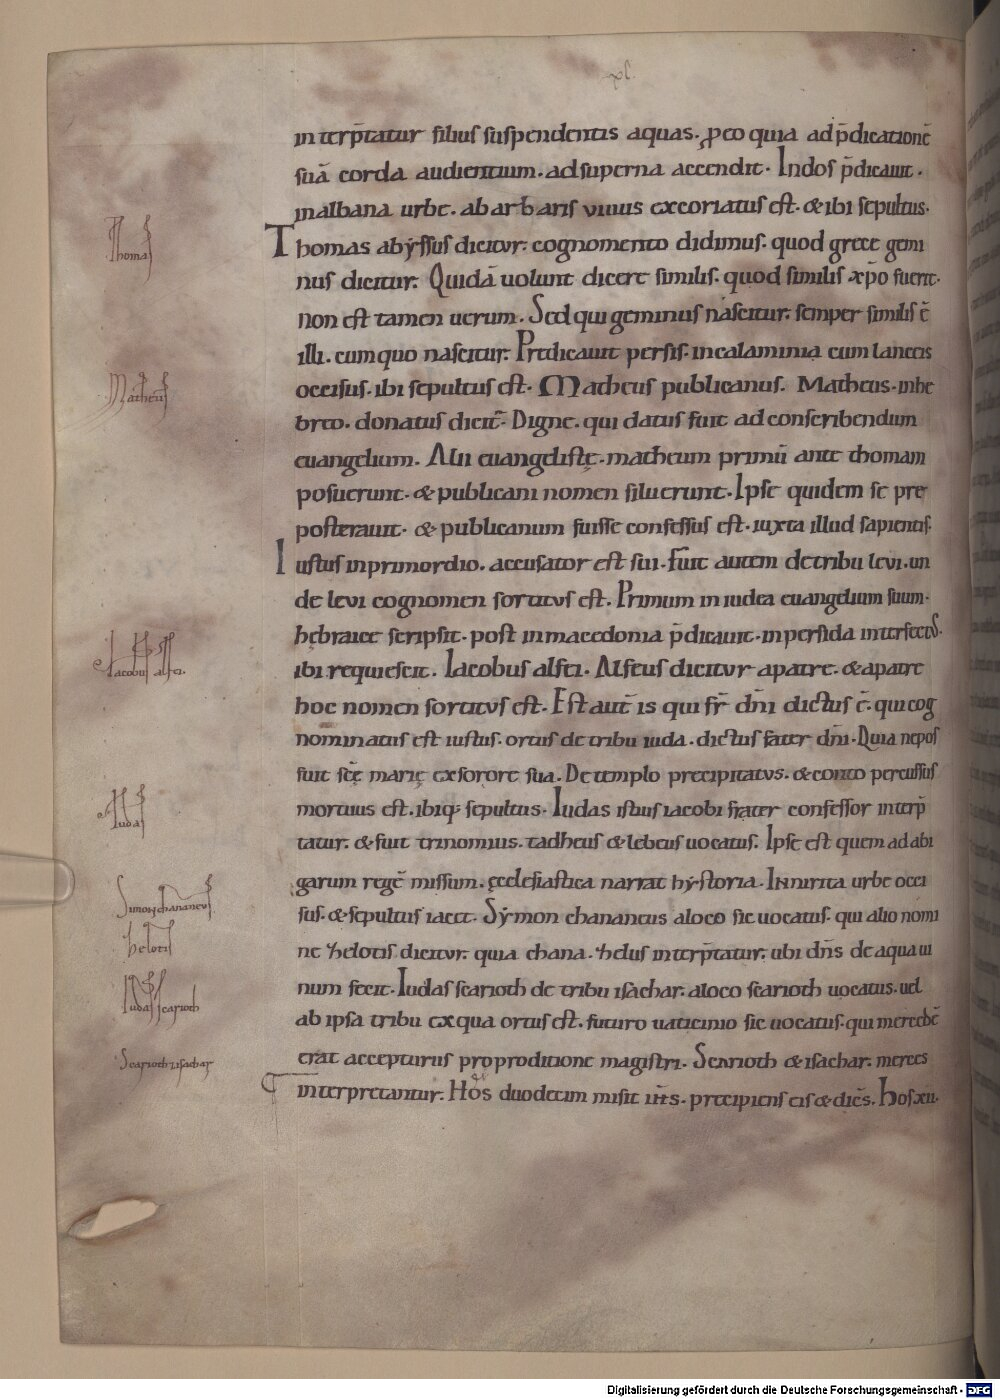 xl.
inte͛rp̄tatur filius suspendentis aquas. ꝓeo quia ad p̄dicationē
suā corda audientium. ad superna accendit. Indos p̄dicauit.
inalbana urbe. abarbaris uiuus excoriatus est. & ibi sepultus.
Thomas
Thomas abyssus dicitur. cognomento didimus. quod grece gemi
nus dicitur. Quidā uolunt dicere similis. quod similis xp̄o fuerit.
non est tamen uerum. Sed qui geminus nascitur. semper similis ē
illi. cum quo nascitur. Predicauit persis. incalaminia cum lanceis
Matheus
occisus. ibi sepultus est. Matheus publicanus. Matheus. inhe
breo. donatus dicit̄. Digne. qui datus fuit ad conscribendum
euangelium. Alii euangelistę. matheum primū ante thomam
posuerunt. & publicani nomen siluerunt. Ipse quidem se pre
posterauit. & publicanum fuisse confessus est. iuxta illud sapientis.
Iustus inprimordio. accusator est sui. Fuit autem detribu leui. un
de leui cognomen sortitus est. Primum in iudea euangelium suum.
hebraice scripsit. post in macedonia p̄dicauit. inpersida interfectus.
Iacobus alfei.
ibi requiescit. Iacobus alfei. Alfeus dicitur apatre. & apatre
hoc nomen sortitus est. Est aut̄ is qui fr̄ dn̄i dictus ē. qui cog
nominatus est iustus. ortus de tribu iuda. dictus frater dn̄i. Quia nepos
fuit scę marię exsorore sua. De templo precipitatus. & conto percussus
Iudas
mortuus est. ibiq; sepultus. Iudas istius iacobi frater confessor interp̄
tatur. & fuit trinomius. tadheus & lebeus uocatus. Ipse est quem ad abi
Simon chananeus
garum regē missum. ęcclesiastica narrat hystoria. Innirita urbe occi
sus. & sepultus iacet. Symon chananeus aloco sic uocatus. qui alio nomi
helotis
ne helotis dicitur. quia chana. helus interp̄tatur. ubi dn̄s de aqua ui
Iudas scarioth
num fecit. Iudas scarioth de tribu isachar. aloco scarioth uocatus. uel
ab ipsa tribu ex qua ortus est. futuro uaticinio sic uocatus. qui mercedē
Scarioth. isachar
erat accepturus pro proditione magistri. Scarioth & isachar. merces
interpretantur. Hos duodecim misit ih̄s. precipiens eis & dicēs. Hos xii.
Digitalisierung gefördert durch die Deutsche Forschungsgemeinschaft - DFG